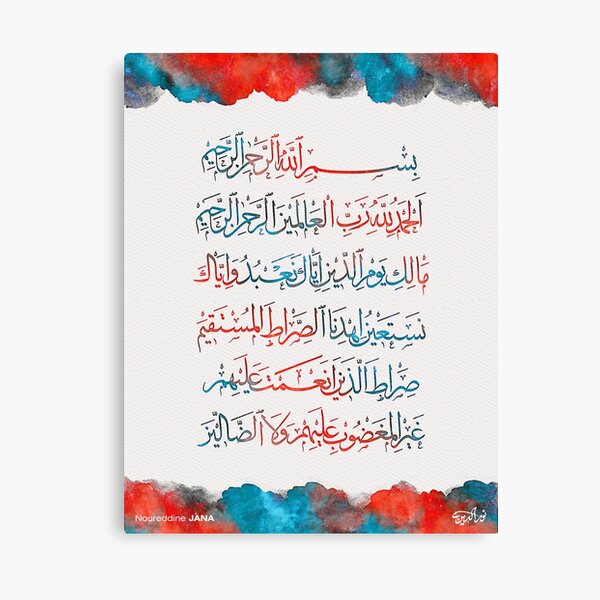 بسم الله الرحمن الرحيم
الحمد لله رب العالمين الرحمن الرحيم
مالك يوم الدين اياك نعبد واياك
نستعين اهدنا الصراط المستقيم
صراط الذين انعمت عليهم
غير المغضوب عليهم ولا الضالين
Noureddine JANA
نورالدين